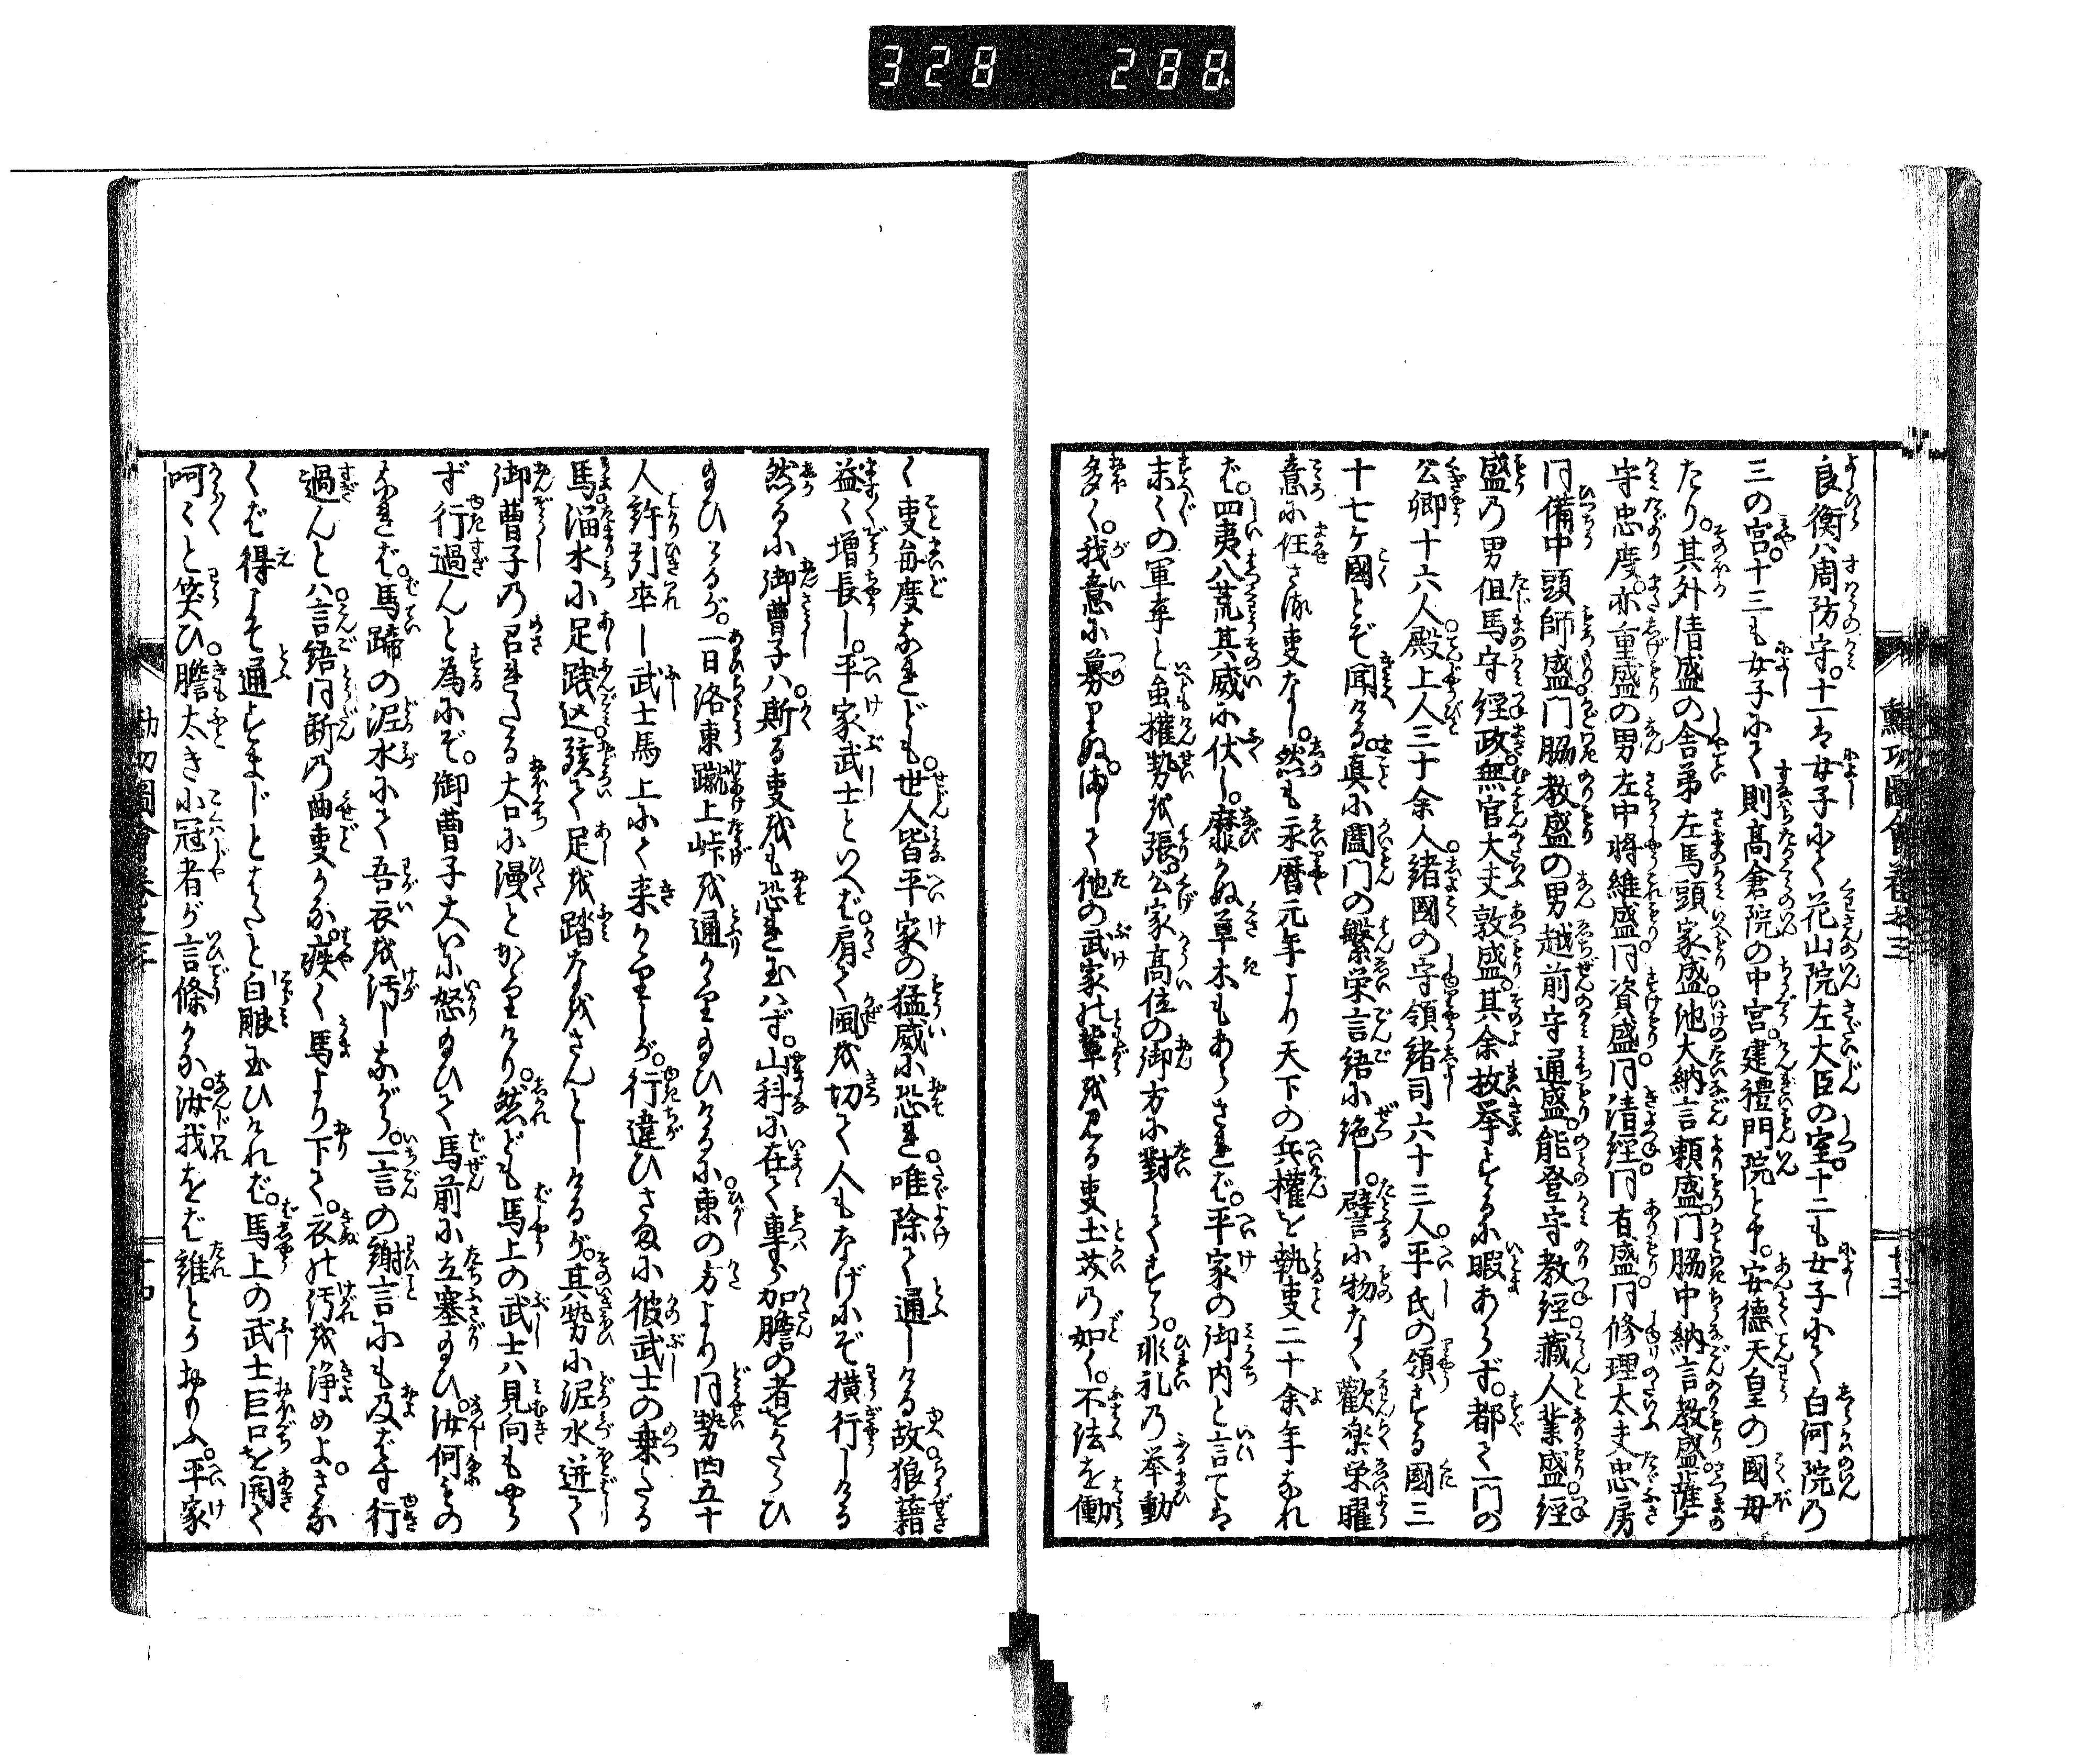 328 288
良衡ハ周防守。十一は女子にて花山院左大臣の室。十二も女子にて白河院の
三の宮。十三も女子にて則高倉院の中宮。建禮門院と申。安徳天皇の國母
たり。其外清盛の舎弟左馬頭家盛。池大納言頼盛。門脇中納言教盛。薩广
守忠度。亦重盛の男左中将維盛。同資盛。同清経。同有盛。同修理太夫忠房
同備中頭師盛。門脇教盛の男越前守通盛。能登守教経。藏人業盛。経
盛の男但馬守経政。無官大夫敦盛。其余故挙するに暇あらず。都て一門の
公卿十六人。殿上人三十余人。緒國の守領緒司六十三人。平氏の領する國三
十七ケ國とぞ聞ける。真に闔門の繁栄言語に絶し。譬に物なく歓楽栄曜
意に任さぬ事なし。然も永暦元年より天下の兵權を執事二十余年なれ
ば。四夷八荒其威に伏し。靡かぬ草木もあらざれば。平家の御内と言ては
末〻の軍卒と虽權勢を張。公家高位の御方に對してすら。非礼の挙動
多く。我意に募りぬ。まして他の武家の輩を見る事土芥の如く。不法を働
く事毎度なれども。世人皆平家の猛威に恐れ。唯除て通しける故。狼藉
益〻増長し。平家武士といへば。肩て風を切て人もなげにぞ横行しける
然るに御曹子ハ。斯る事をも恐れ玉ハず。山科に在て專ら加膽の者をかたらひ
玉ひけるが。一日洛東蹴上峠を通かゝり玉ひけるに。東の方より同勢四五十
人許引率し武士馬上にて来かゝりしが。行違ひさまに彼武士の乗たる
馬溜水に足踐込。駭て足を踏なをさんとしけるが。其勢に泥水迸て
御曹子の召れたる大口に漫とかゝりけり。然れども馬上の武士ハ見向もやら
ず行過んと為にぞ。御曹子大いに怒玉ひて馬前に立塞玉ひ。汝何ものの
なれば。馬蹄の泥水にて吾衣を汚しながら。一言の謝言にも及ばず行
過んとハ。言語同断の曲事かな。疾く馬より下て。衣の汚を浄めよ。さな
くば得こそ通すまじとはたと白眼玉ひければ。馬上の武士巨口を開て
呵〻と笑ひ。膽太き小冠者が言條かな。汝我をば誰とかおもふ。平家